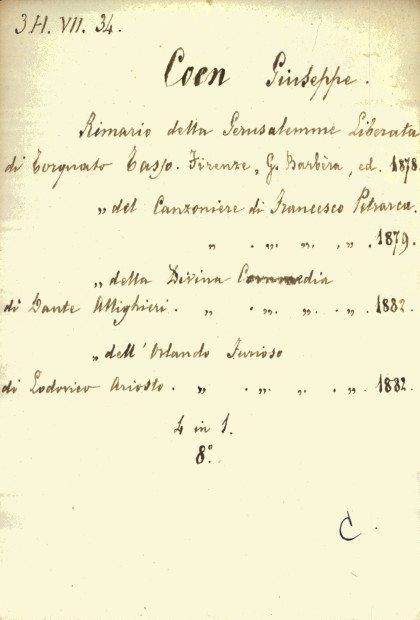 3 H. VII. 34.
Coen Giuseppe.
Rimario della Gerusalemme Liberata
di Torquato Tasso. Firenze, G. Barbèra, ed. 1878.
„ del Canzoniere di Francesco Petrarca.
„ . „. „. . „ . 1879.
„ della Divina Commedia
di Dante Allighieri. „ . „. „. . „. 1882.
„ dell'Orlando Furioso
di Lodovico Ariosto. „ . „. „. . „. 1882.
4 in 1.
8°.
C.